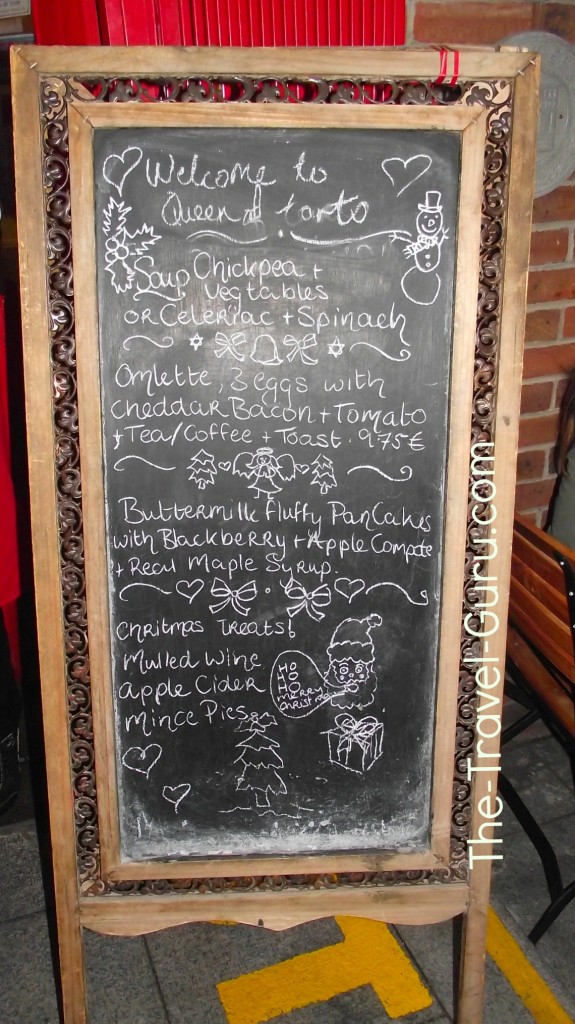 Welcome to
Queen of tarts
Soup Chickpea +
Vegtables
OR Celeriac + Spinach
Omlette, 3 eggs with
Cheddar Bacon + Tomato
+ Tea/Coffee + Toast. 9.75€
Buttermilk Fluffy PanCakes
with Blackberry + Apple Compote
+ Real Maple Syrup.
Chritmas Treats!
Mulled Wine
Apple Cider
Mince Pies
HO
HO
HO
merry
christmas
The-Travel-Guru.com